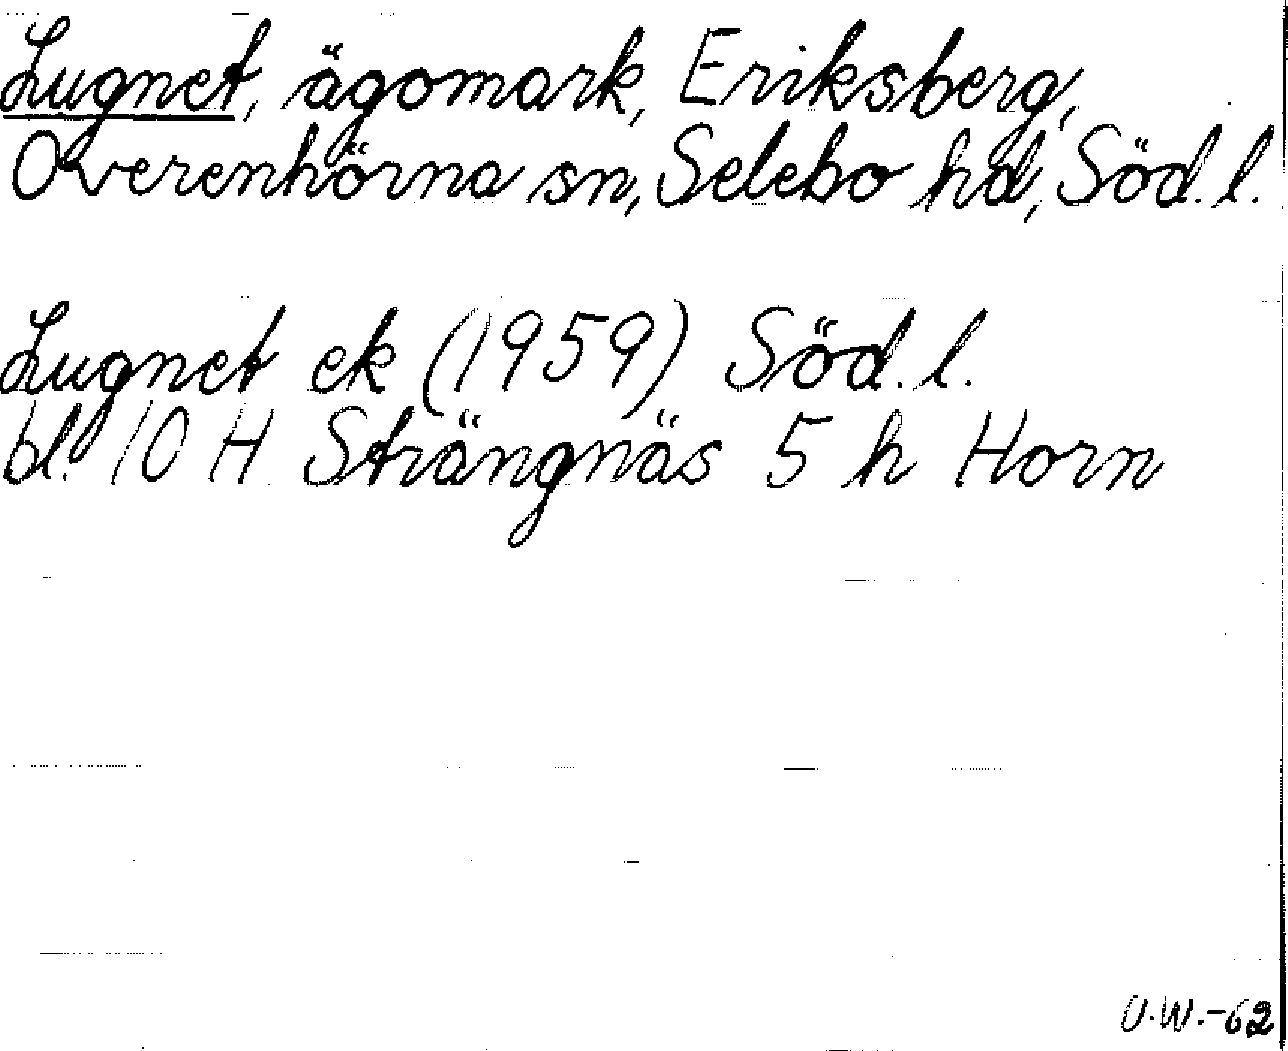 Lugnet, ägomark, Eriksberg,
Overenhörna sn, Selebo hd, Söd. l.
Lugnet ek (1959) Söd. l.
bl. 10 H Strängnäs 5 h Horn
U.W.-62